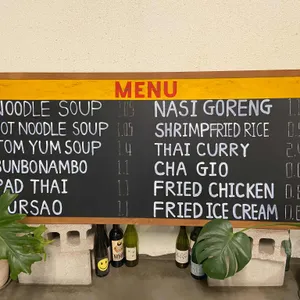 MENU
NOODLE SOUP 1.05
OT NOODLE SOUP 1.05
TOM YUM SOUP 1.4
BUNBONAMBO 1.1
PAD THAI 1.1
URSAO 1.1
NASI GORENG
SHRIMPFRIED RICE
THAI CURRY
CHA GIO
FRIED CHICKEN
FRIED ICE CREAM